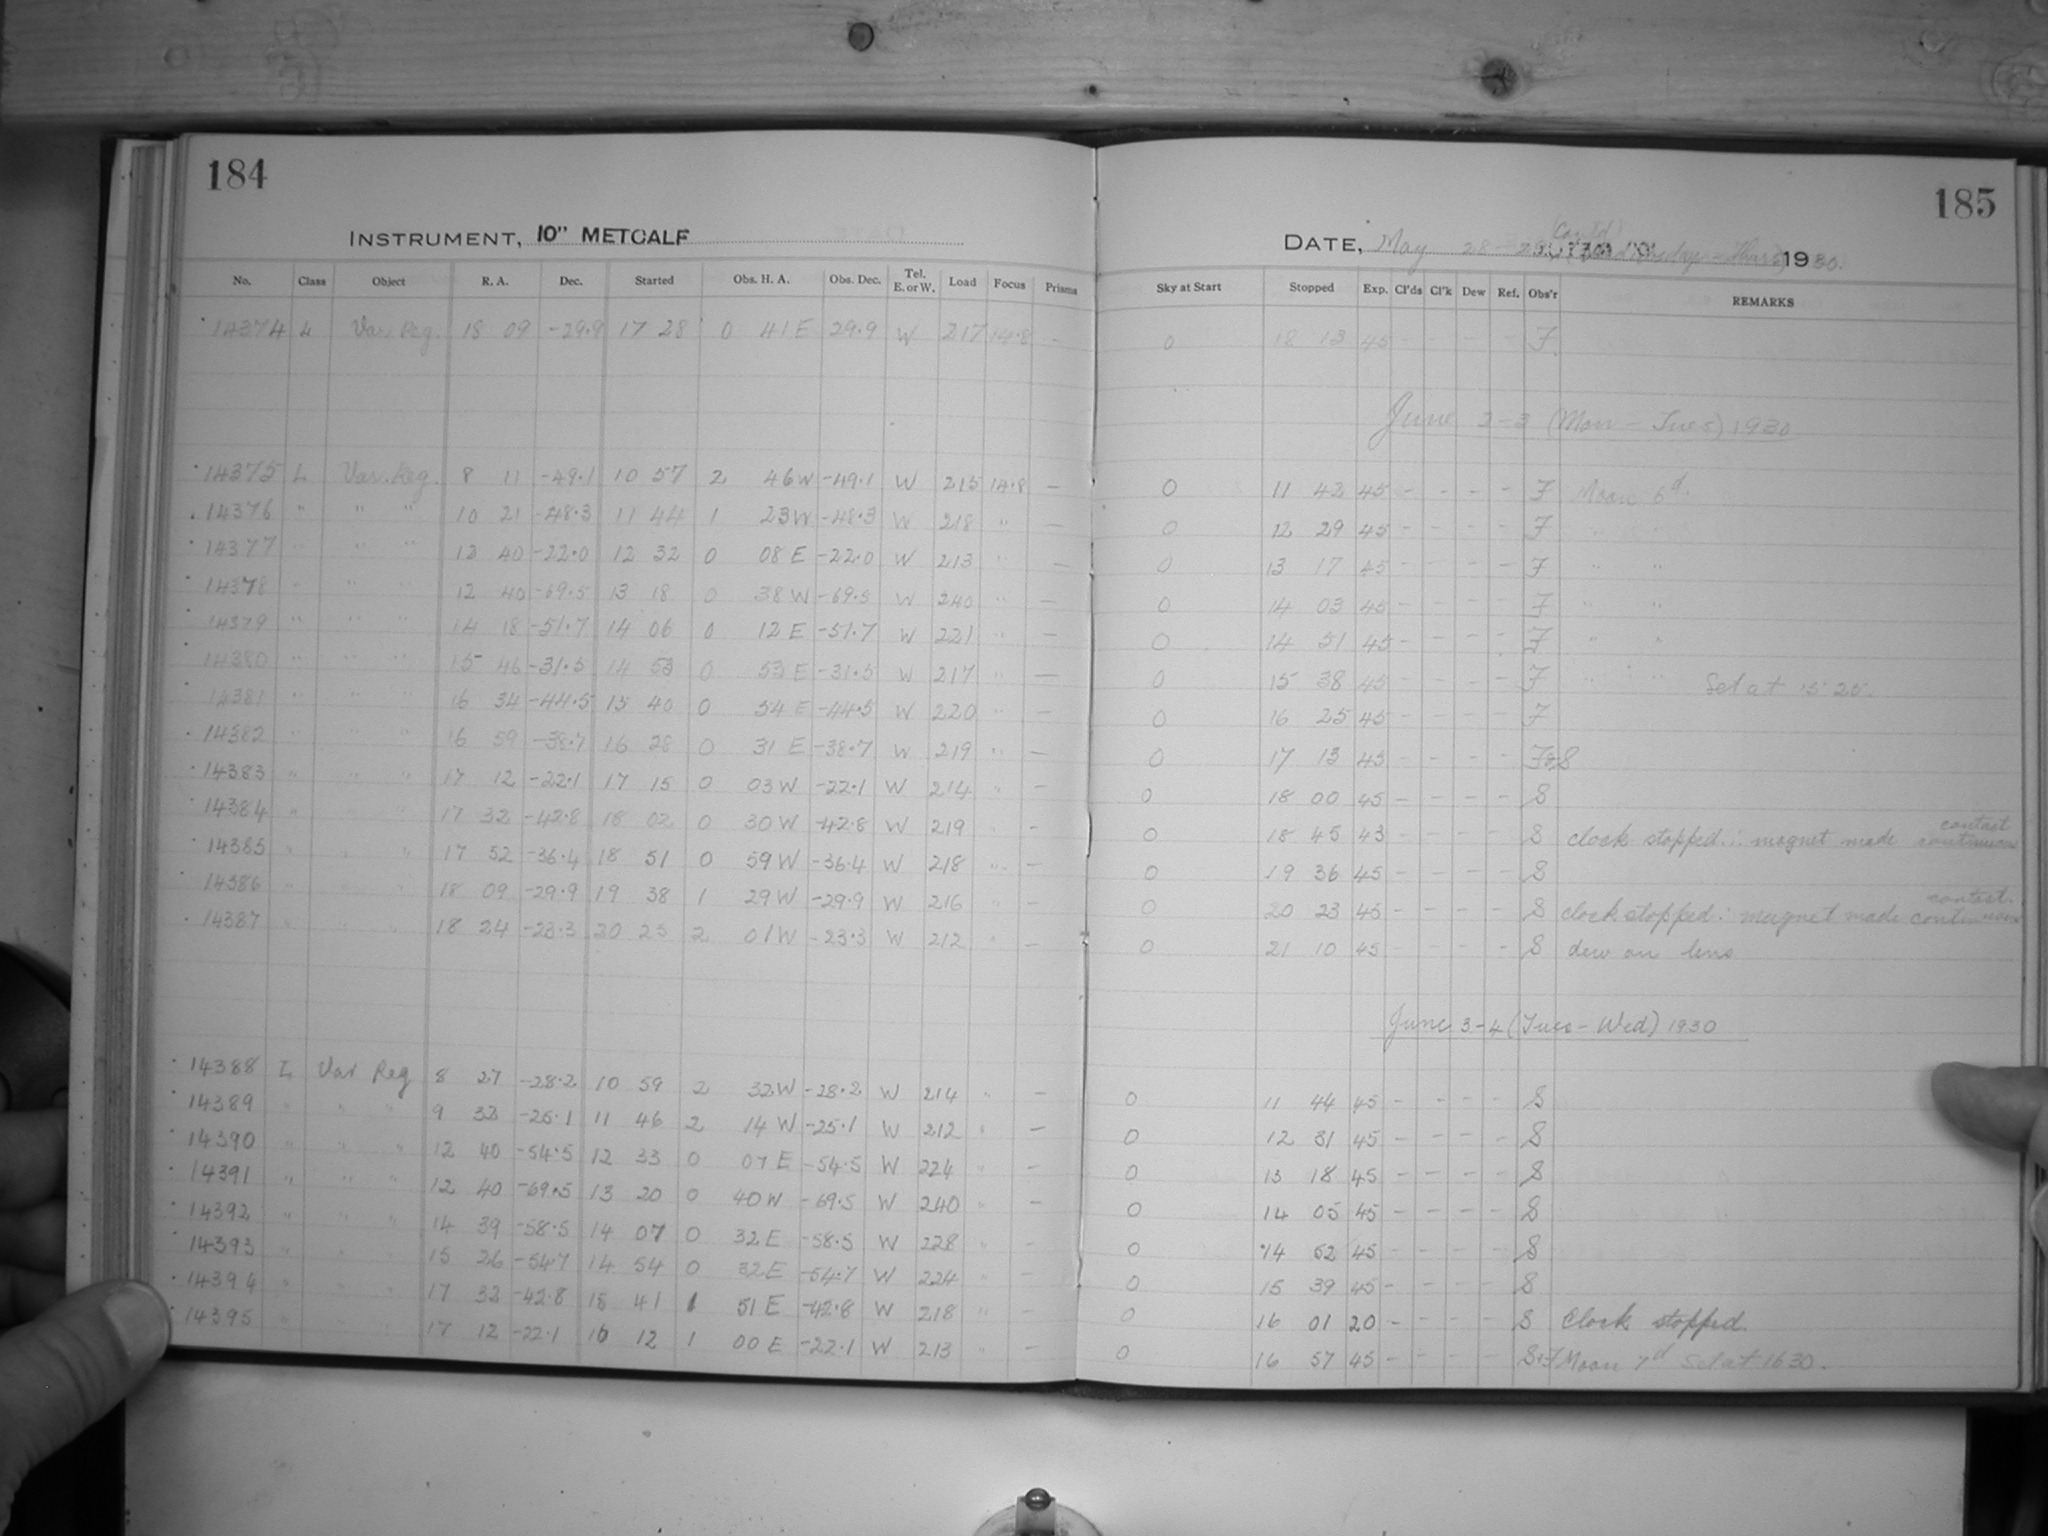 184
185
INSTRUMENT, 10" METCALF
DATE, May 28-29 (Cont'd) 1930.
No. Class Object R. A. Dec. Started Obs. H. A. Obs. Dec. Tel. E. or W. Load Focus Prisms Sky at Start Stopped Exp. Cl'ds Cl'k Dew Ref. Obs'r REMARKS
14374 L Var. Reg. 18 09 -29.9 17 28 0 41 E 29.9 W 217 14.8 - 0 18 13 45 - - - - F.
June 2-3 (Mon - Tues) 1930
14375 L Var. Reg. 8 11 -49.1 10 57 2 46 W -49.1 W 215 14.8 - 0 11 42 45 - - - - F Moon 6d.
14376 " " " 10 21 -48.3 11 44 1 23 W -48.3 W 218 " - 0 12 29 45 - - - - F " "
14377 " " " 12 40 -22.0 12 32 0 08 E -22.0 W 213 " - 0 13 17 45 - - - - F " "
14378 " " " 12 40 -69.5 13 18 0 38 W -69.5 W 240 " - 0 14 03 45 - - - - F " "
14379 " " " 14 18 -51.7 14 06 0 12 E -51.7 W 221 " - 0 14 51 45 - - - - F " "
14380 " " " 15 46 -31.5 14 53 0 53 E -31.5 W 217 " - 0 15 38 45 - - - - F " " Set at 15 25.
14381 " " " 16 34 -44.5 15 40 0 54 E -44.5 W 220 " - 0 16 25 45 - - - - F
14382 " " " 16 59 -38.7 16 28 0 31 E -38.7 W 219 " - 0 17 13 45 - - - - F&S
14383 " " " 17 12 -22.1 17 15 0 03 W -22.1 W 214 " - 0 18 00 45 - - - - S
14384 " " " 17 32 -42.8 18 02 0 30 W -42.8 W 219 " - 0 18 45 43 - - - - S clock stopped: magnet made continuous contact
14385 " " " 17 52 -36.4 18 51 0 59 W -36.4 W 218 " - 0 19 36 45 - - - - S
14386 " " " 18 09 -29.9 19 38 1 29 W -29.9 W 216 " - 0 20 23 45 - - - - S clock stopped: magnet made continuous contact.
14387 " " " 18 24 -23.3 20 25 2 01 W -23.3 W 212 " - 0 21 10 45 - - - S dew on lens
June 3-4 (Tues - Wed) 1930
14388 L Var Reg 8 27 -28.2 10 59 2 32 W -28.2 W 214 " - 0 11 44 45 - - - - S
14389 " " " 9 32 -25.1 11 46 2 14 W -25.1 W 212 " - 0 12 31 45 - - - - S
14390 " " " 12 40 -54.5 12 33 0 07 E -54.5 W 224 " - 0 13 18 45 - - - - S
14391 " " " 12 40 -69.5 13 20 0 40 W -69.5 W 240 " - 0 14 05 45 - - - - S
14392 " " " 14 39 -58.5 14 07 0 32 E -58.5 W 228 " - 0 14 52 45 - - - - S
14393 " " " 15 26 -54.7 14 54 0 32 E -54.7 W 224 " - 0 15 39 45 - - - - S
14394 " " " 17 32 -42.8 15 41 1 51 E -42.8 W 218 " - 0 16 01 20 - - - - S Clock stopped.
14395 " " " 17 12 -22.1 16 12 1 00 E -22.1 W 213 " - 0 16 57 45 - - - - S&F Moon 7d set at 1630.